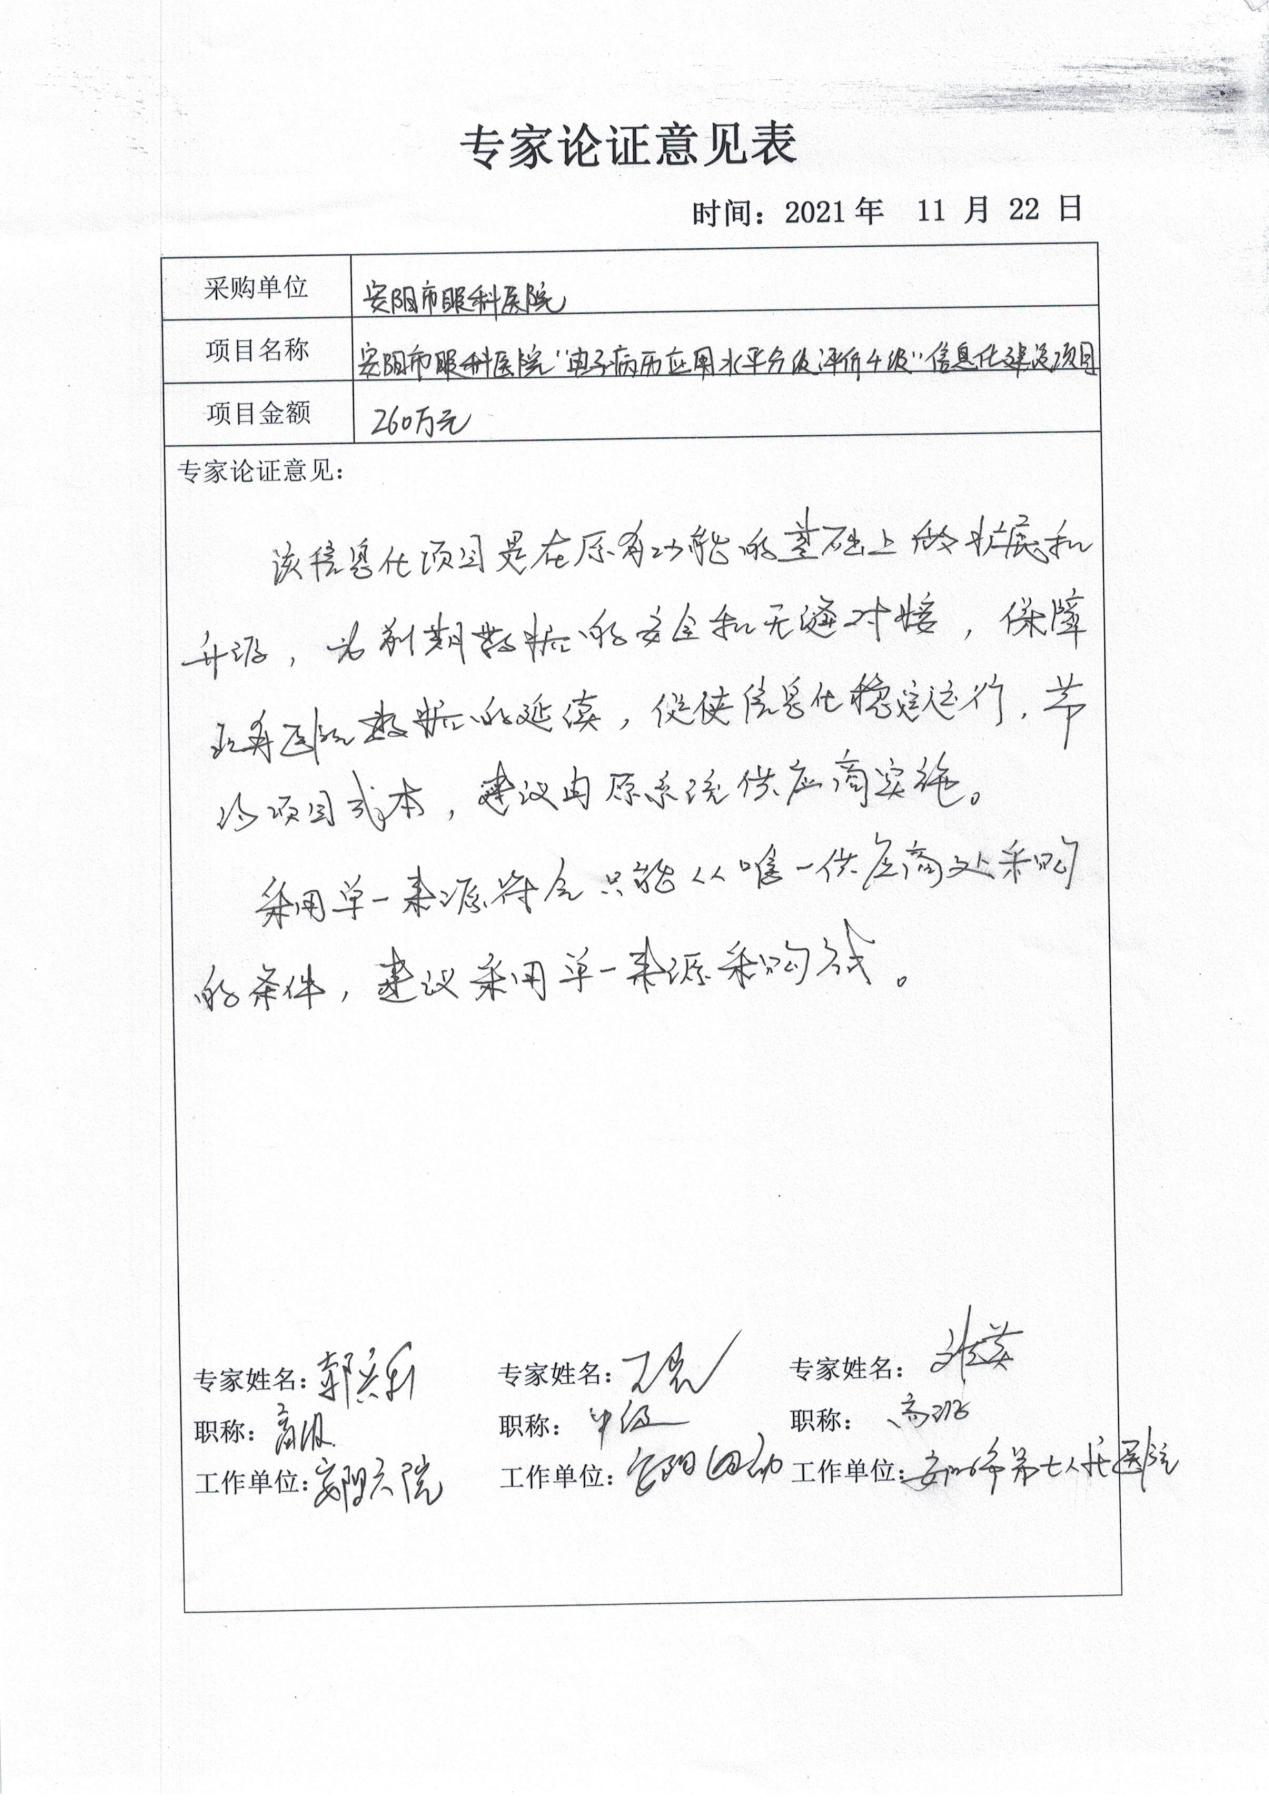 专家论证意见表
时间：2021年 11 月 22 日
采购单位 安阳市眼科医院
项目名称 安阳市眼科医院“电子病历应用水平分级评价4级”信息化建设项目
项目金额 260万元
专家论证意见：
该信息化项目是在原有功能的基础上做扩展和
升级，为前期数据的安全和无缝对接，保障
现有医院数据的延续，促使信息化稳定运行，节
约项目成本，建议由原系统供应商实施。
采用单一来源符合只能从唯一供应商处采购
的条件，建议采用单一来源采购方式。
专家姓名： 专家姓名： 专家姓名：
职称：高级 职称：中级 职称：高级
工作单位：安阳六院 工作单位：安阳 工作单位：安阳市第七人民医院